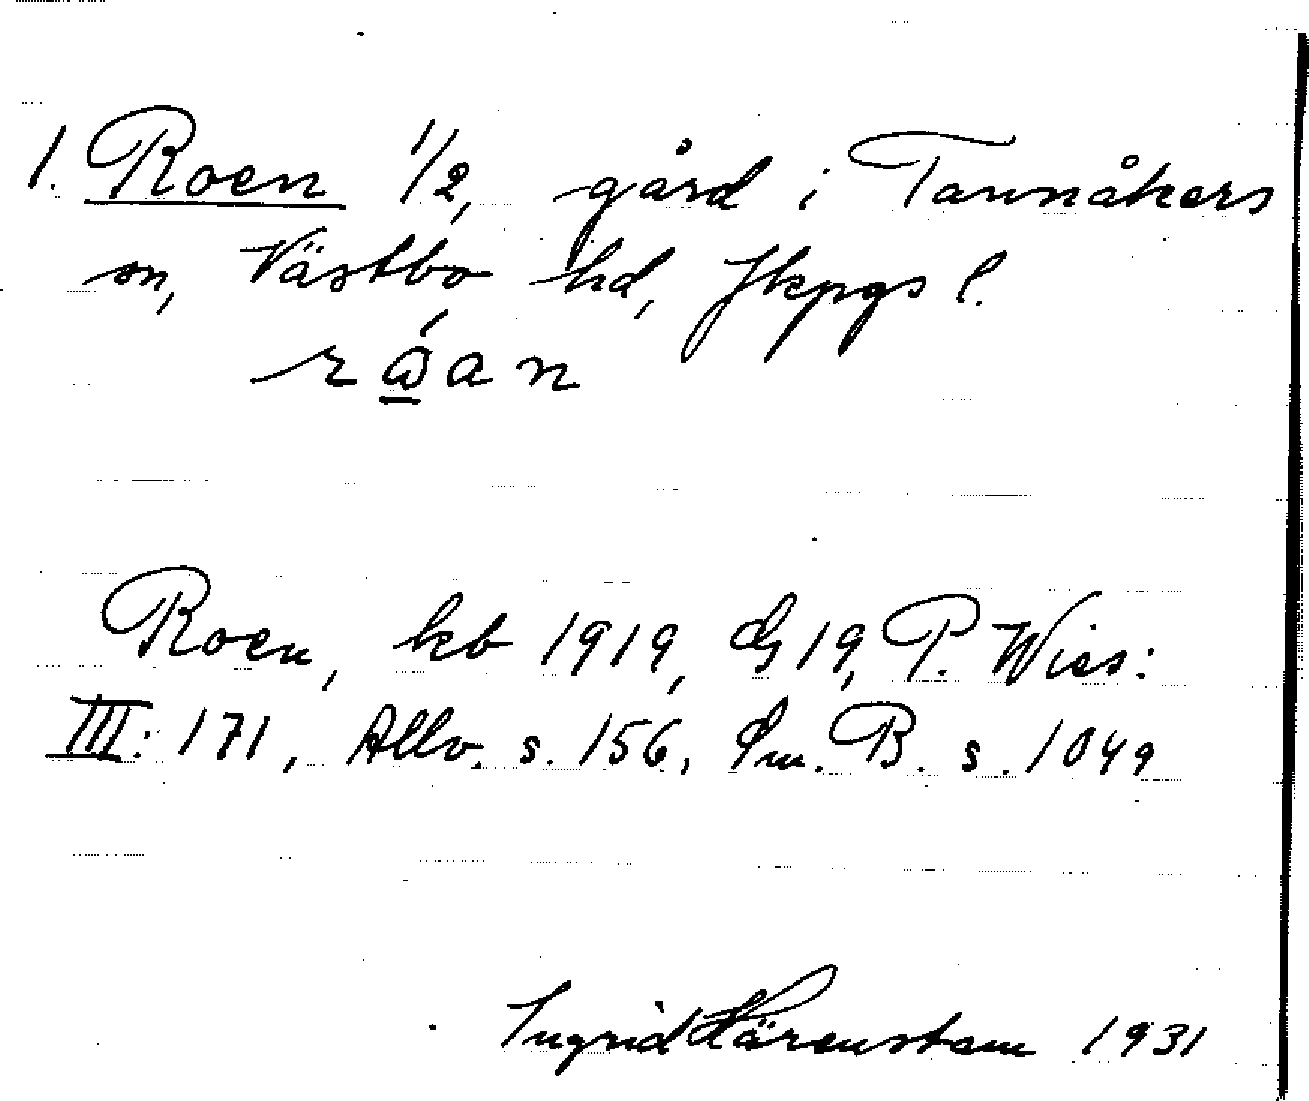 1. Roen 1/2, gård i Tannåkers
sn, Västbo hd, Jkpgs l.
Roen, kb 1919, G 19, P. Wies:
III: 171, Allv. s. 156, Sm. B. s. 1049
Ingrid Härenstam 1931